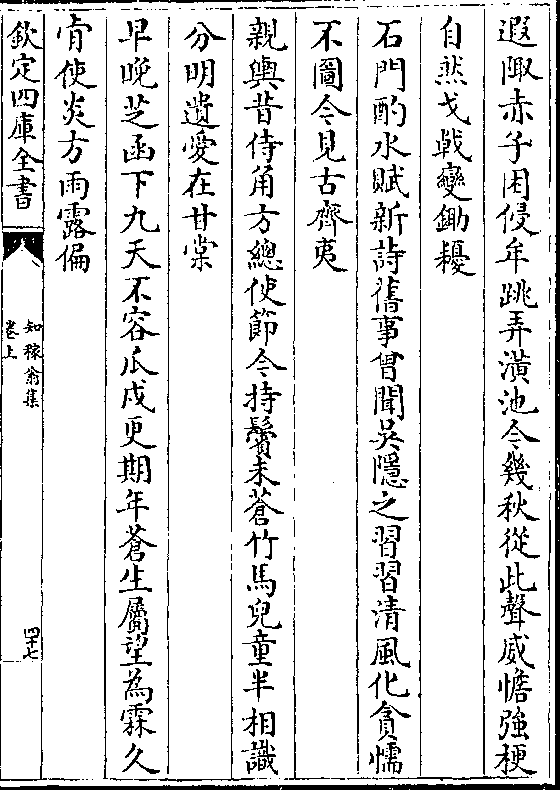 遐陬赤子困侵牟跳弄潢池今幾秋從此聲威憺強梗
自然戈㦸變鋤耰
石門酌水賦新詩舊事曾聞吳隱之習習清風化貪懦
不圖今見古齊夷
親輿昔侍角方總使節今持鬢未蒼竹馬兒童半相識
分明遺愛在甘棠
早晚芝函下九天不容瓜戍更期年蒼生屬望為霖久
肯使炎方雨露偏
欽定四庫全書
知稼翁集
卷上
四十七